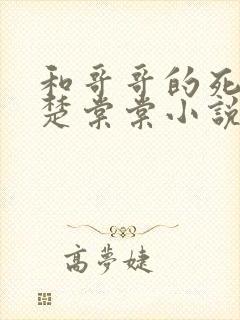 和哥哥的死
楚棠棠小說
高夢婕